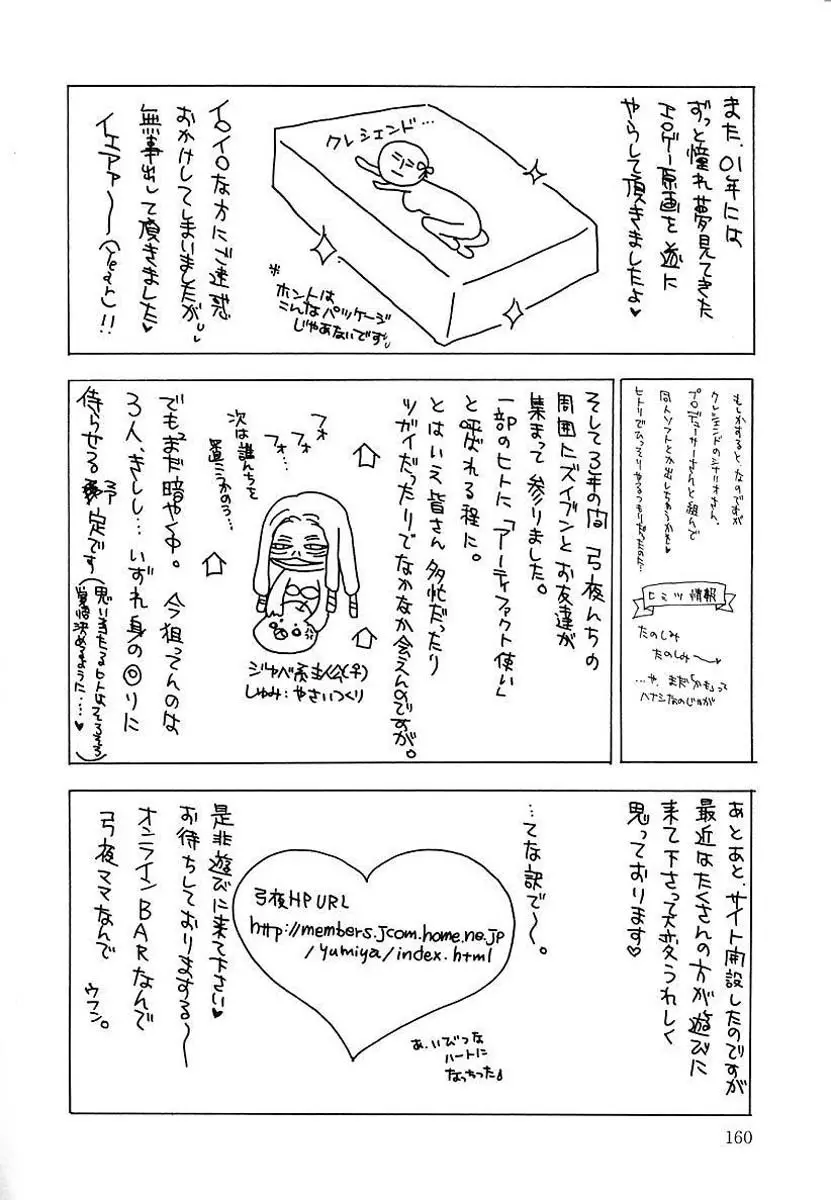 また、01年には
ずっと憧れ夢見てきた
エロゲー原画を遂に
やらして頂きましたよ♥
クレシェンド…
※
ホントは
こんなパッケージ
じゃあないです。
イロイロな方にご迷惑
おかけしてしまいましたが、
無事出して頂きました♥
イエアァ〜〜(Yeah)!!
もしかすると、なのですが
クレシェンドのシナリオさん、
プロデューサーさんと組んで
同人ソフトとか出しちゃうかも♥
ヒトリでひっそりやるつもりだったのだ…
ヒミツ情報
たのしみ
たのしみ〜
…や、まだ「かも」って
ハナシなのじゃが
そして3年の間 弓夜んちの
周囲にズイブンとお友達が
集まって参りました。
一部のヒトに「アーティファクト使い」
と呼ばれる程に。
とはいえ皆さん多忙だったり
ツガイだったりでなかなか会えんのですが。
フォ…
フォ…
次は誰んちを
置こうかのう…
ジャベ系主人公(♀)
しゅみ:やさいつくり
でもまだ暗やく中。今狙ってんのは
3人、きしし…いずれ身の回りに
侍らせる予定です
(思い当たるヒトはそろそろ
覚悟決めるように…♥)
あとあと、サイト開設したのですが
最近はたくさんの方が遊びに
来て下さって大変うれしく
思っております♥
…てな訳で〜。
弓夜HP URL
http://members.jcom.home.ne.jp
/yumiya/index.html
あ、いびつな
ハートに
なっちった♪
是非遊びに来て下さい♥
お待ちしておりまする〜
オンラインBARなんで
弓夜ママなんで
ウフン。
160